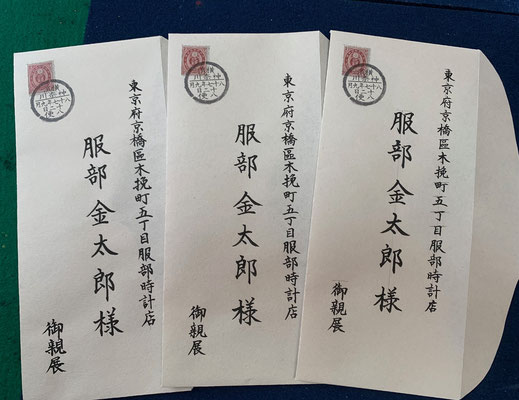 東京府京橋區木挽町五丁目服部時計店
服部金太郎様
御親展
東京府京橋區木挽町五丁目服部時計店
服部金太郎様
御親展
東京府京橋區木挽町五丁目服部時計店
服部金太郎様
御親展